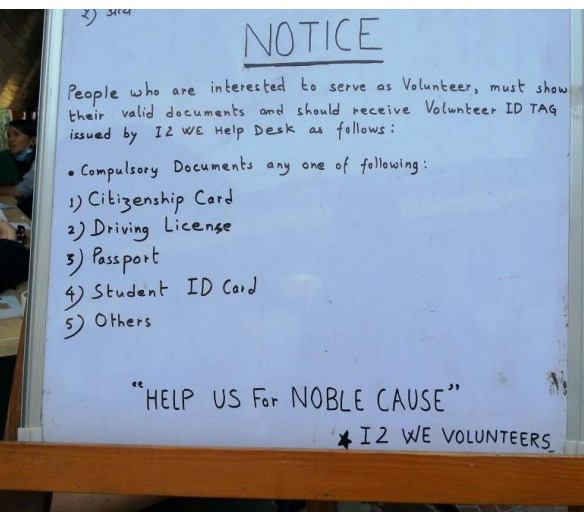 ५) अन्य
NOTICE
People who are interested to serve as Volunteer, must show
their valid documents and should receive Volunteer ID TAG
issued by I2 WE Help Desk as follows :
• Compulsory Documents any one of following :
1) Citizenship Card
2) Driving License
3) Passport
4) Student ID Card
5) Others
"HELP US For NOBLE CAUSE"
★ I2 WE VOLUNTEERS